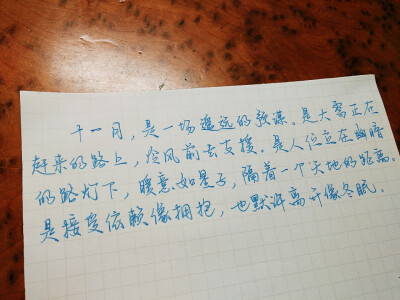 十一月，是一场遥远的预谋。是大雪正在
赶来的路上，冷风前去支援。是人位立在幽暗
的路灯下，暖意如星子，隔着一个天地的距离。
是接受依赖像拥抱，也默许离开像冬眠。